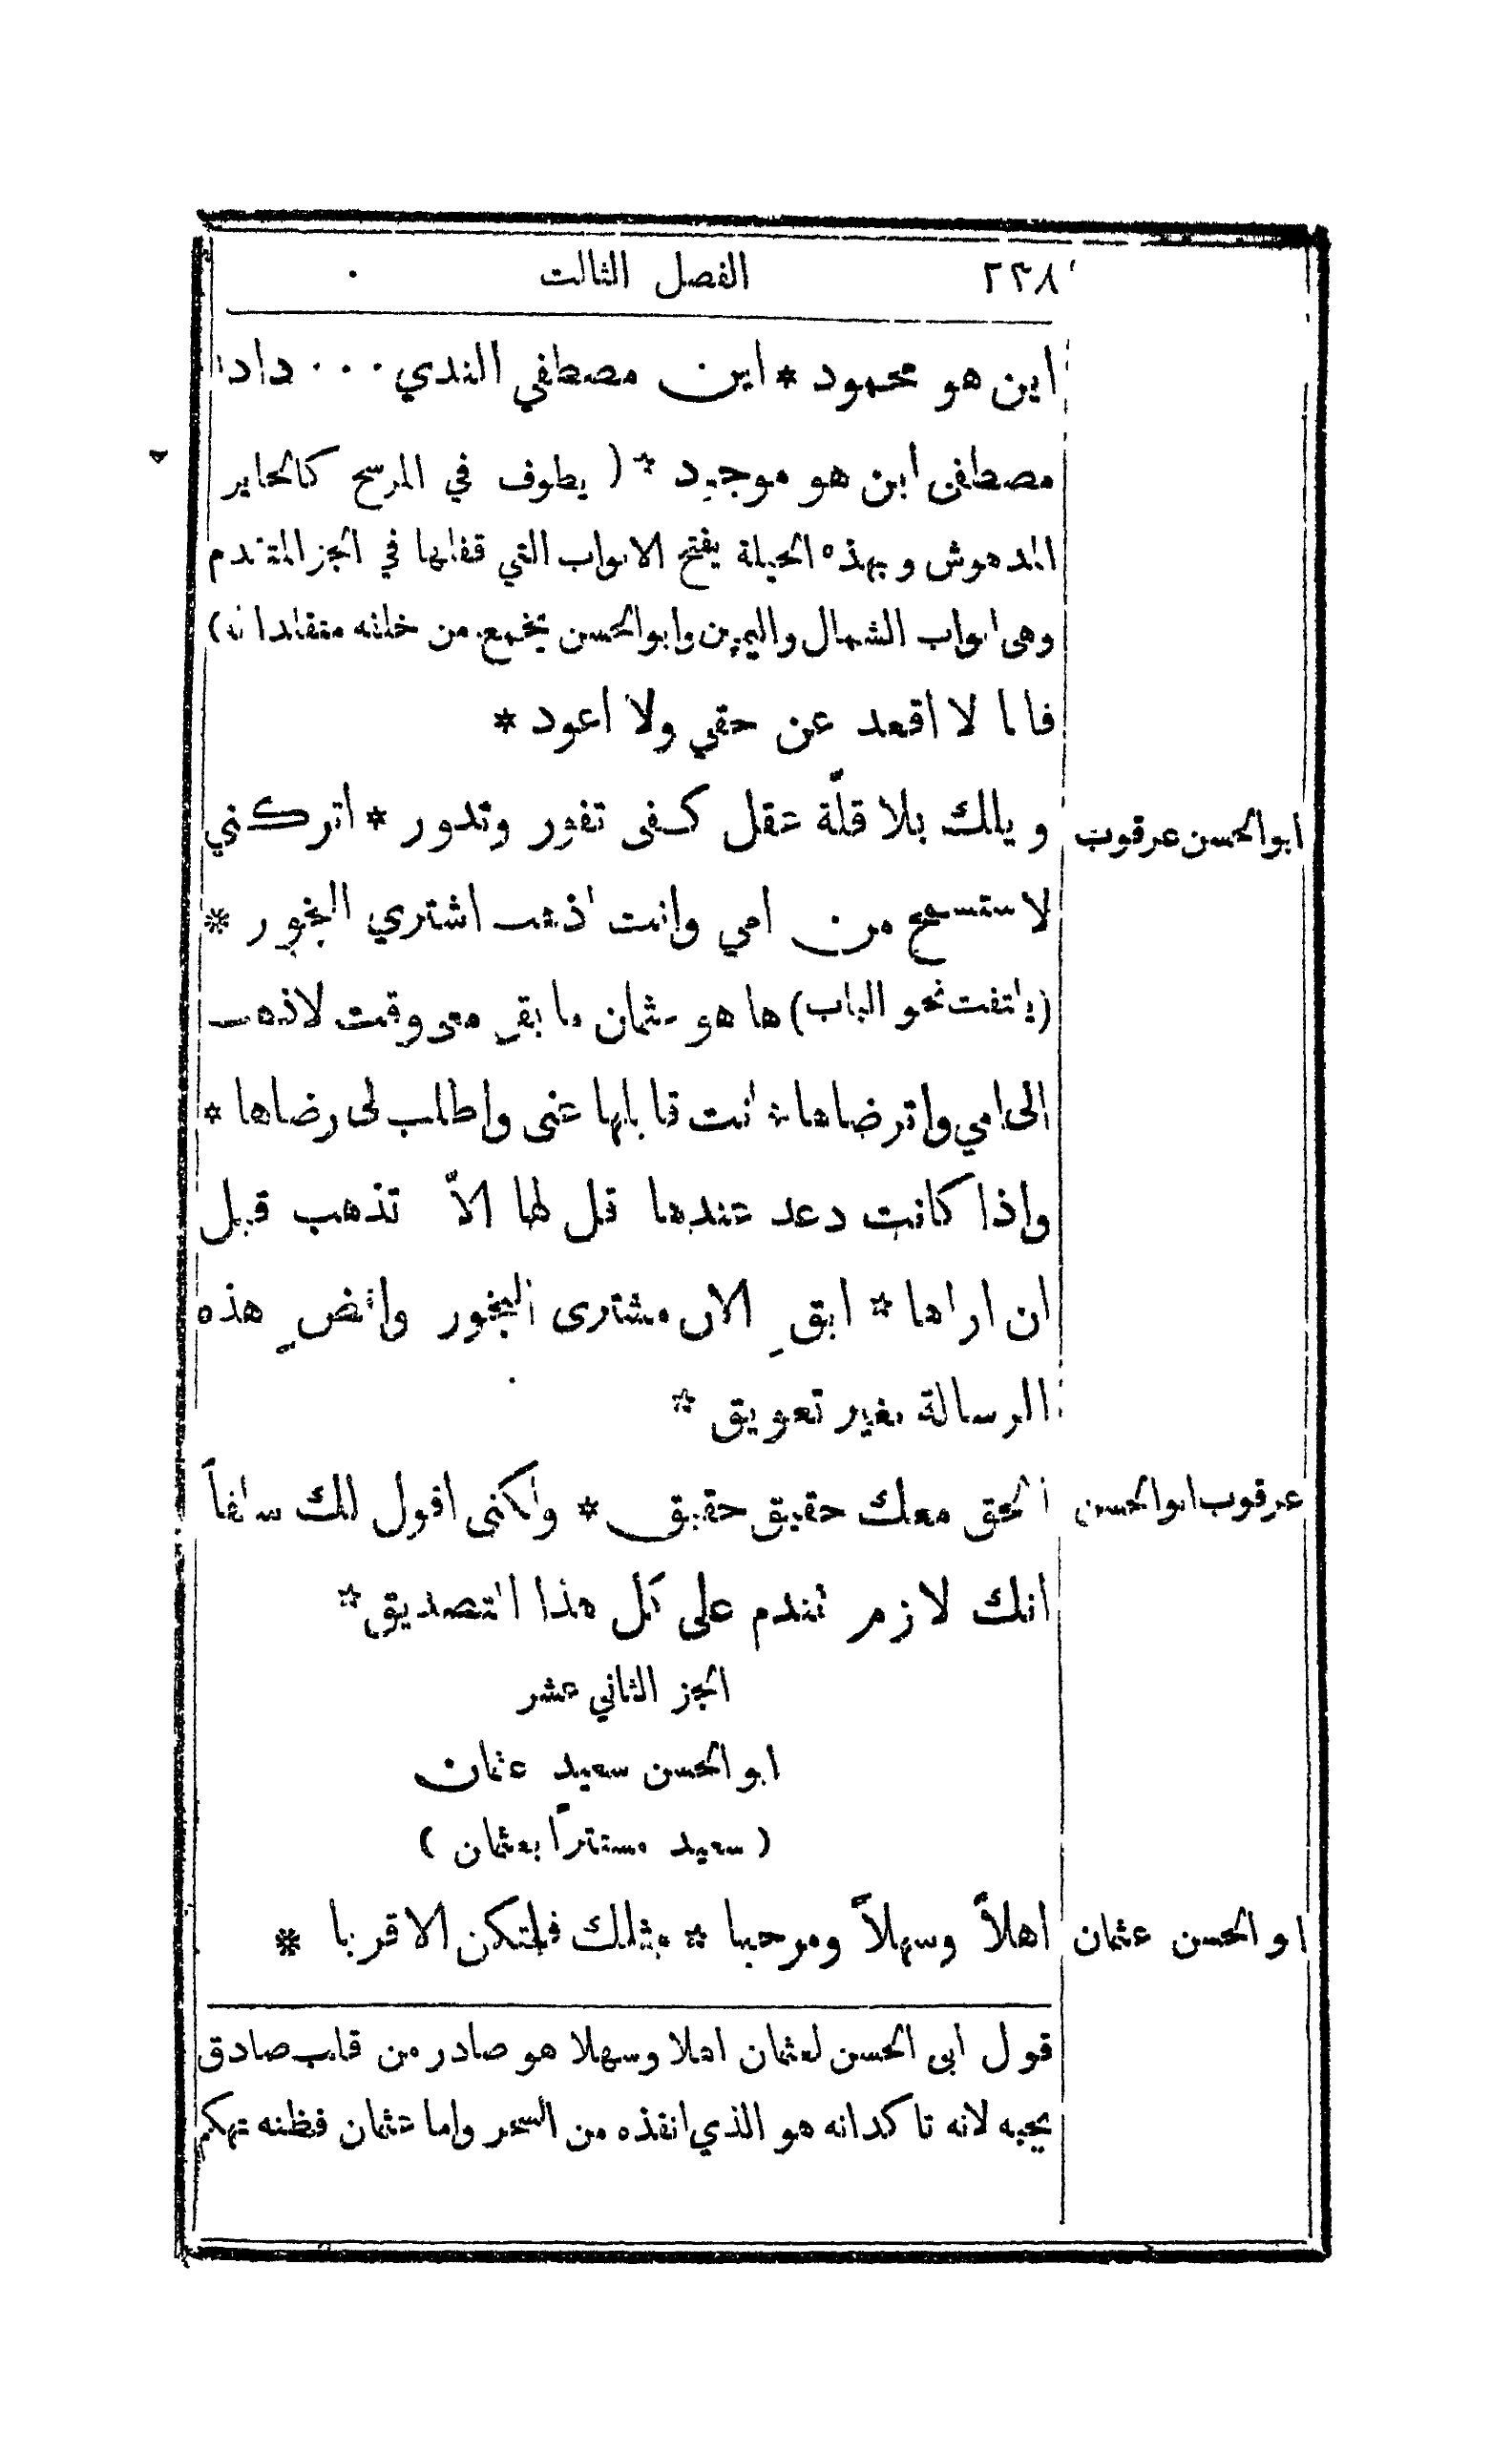 ٢٣٨ الفصل الثالث
اين هو محمود * اين مصطفي الندي ٠٠٠ دادا
مصطفى اين هو موجود * ( يطوف في المرسح كالحاير
المدهوش وبهذه الحيلة يفتح الابواب التي قفلها في الجز المتقدم
وهي ابواب الشمال واليمين وابو الحسن يخمع من خلفه متقلدا له )
فانا لا اقعد عن حقي ولا اعود *
ابو الحسن عرقوب ويلك بلا قلّة عقل كفى تفور وتدور * اتركني
لاستسمح من امي وانت اذهب اشتري البخور *
( يلتفت نحو الباب ) ها هو عثمان ما بقي معي وقت لاذهب
الى امي واترضاها * انت قابلها عني واطلب لي رضاها *
واذا كانت دعد عندها قل لها الاّ تذهب قبل
ان اراها * ابقِ الان مشترى البخور واقضِ هذه
الرسالة بغير تعويق *
عرقوب ابو الحسن الحق معك حقيق حقيق * ولكني اقول لك سالفاً
انك لازم تندم على كل هذا التصديق *
الجز الثاني عشر
ابو الحسن سعيد عثمان
( سعيد مستتراً بعثمان )
ابو الحسن عثمان اهلاً وسهلاً ومرحبا * مثلك فلتكن الاقربا *
قول ابي الحسن لعثمان اهلا وسهلا هو صادر من قلب صادق
يحبه لانه تاكد انه هو الذي انقذه من السحر واما عثمان فظنه تهكم